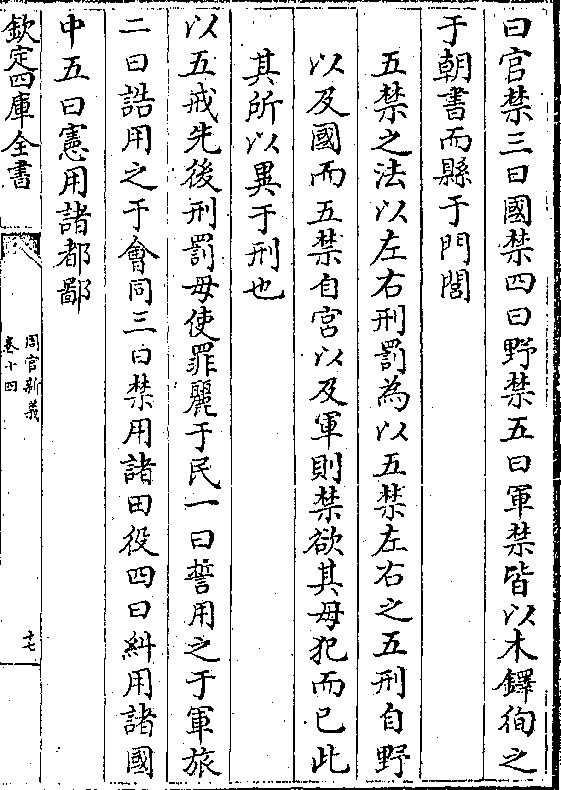 曰官禁三曰國禁四曰野禁五曰軍禁皆以木鐸徇之
于朝書而縣于門閭
五禁之法以左右刑罰為以五禁左右之五刑自野
以及國而五禁自宮以及軍則禁欲其毋犯而已此
其所以異于刑也
以五戒先後刑罰毋使罪麗于民一曰誓用之于軍旅
二曰誥用之于會同三曰禁用諸田役四曰糾用諸國
中五曰憲用諸都鄙
欽定四庫全書
周官新義
卷十四
十七